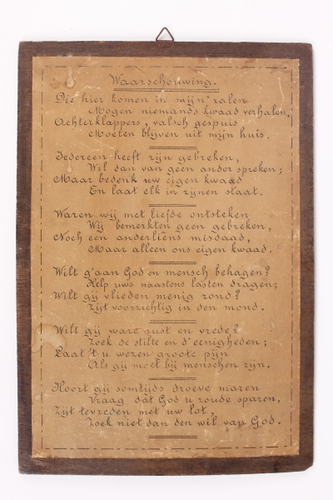 Waarschouwing.
Die hier komen in mijn zalen
Mogen niemands kwaad verhalen,
Achterklappers, valsch gespuis
Moeten blijven uit mijn huis.
Iedereen heeft zijn gebreken,
Wil dan van geen ander spreken;
Maar bedenk uw eigen kwaad
En laat elk in zijnen staat.
Waren wij met liefde ontsteken
Wij bemerkten geen gebreken,
Noch een anderliens misdaad,
Maar alleen ons eigen kwaad.
Wilt g'aan God en mensch behagen?
Help uws naastens lasten dragen;
Wilt gij vlieden menig zond?
Zijt voorzichtig in den mond.
Wilt gij ware rust en vrede?
Zoek de stilte en d'eenigheden;
Laat't u wezen groote pijn
Als gij moet bij menschen zijn.
Hoort gij somtijds droeve maren
Vraag dat God u zoude sparen,
Zijt tevreden met uw lot,
Zoek niet dan den wil van God.